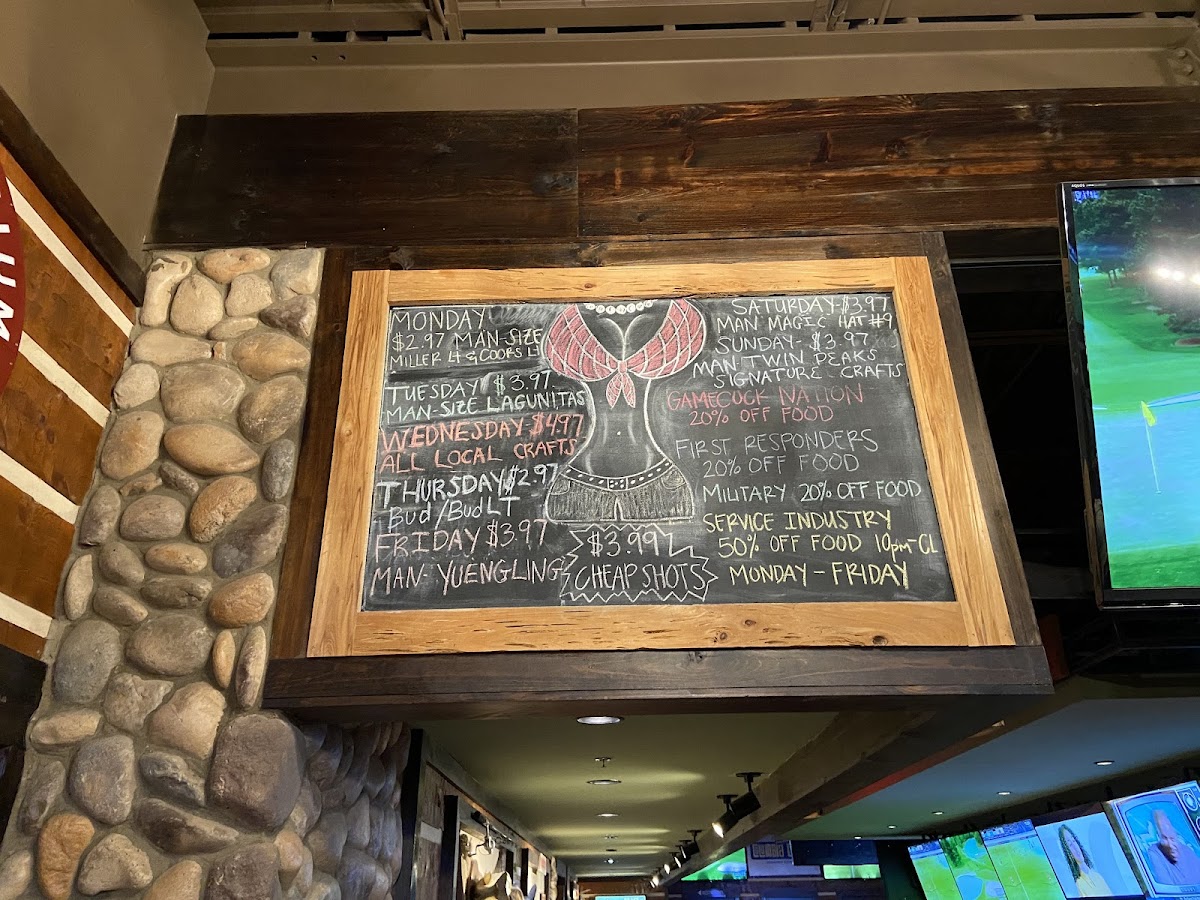 MONDAY
$2.97 MAN-SIZE
MILLER Lt & COORS Lt
TUESDAY $3.97
MAN-SIZE LAGUNITAS
WEDNESDAY $4.97
ALL LOCAL CRAFTS
THURSDAY $2.97
Bud/Bud LT
FRIDAY $3.97
MAN-YUENGLING
$3.99
CHEAP SHOTS
SATURDAY-$3.97
MAN MAGIC HAT #9
SUNDAY-$3.97
MAN TWIN PEAKS
SIGNATURE CRAFTS
GAMECOCK NATION
20% OFF FOOD
FIRST RESPONDERS
20% OFF FOOD
MILITARY 20% OFF FOOD
SERVICE INDUSTRY
50% OFF FOOD 10pm-CL
MONDAY-FRIDAY